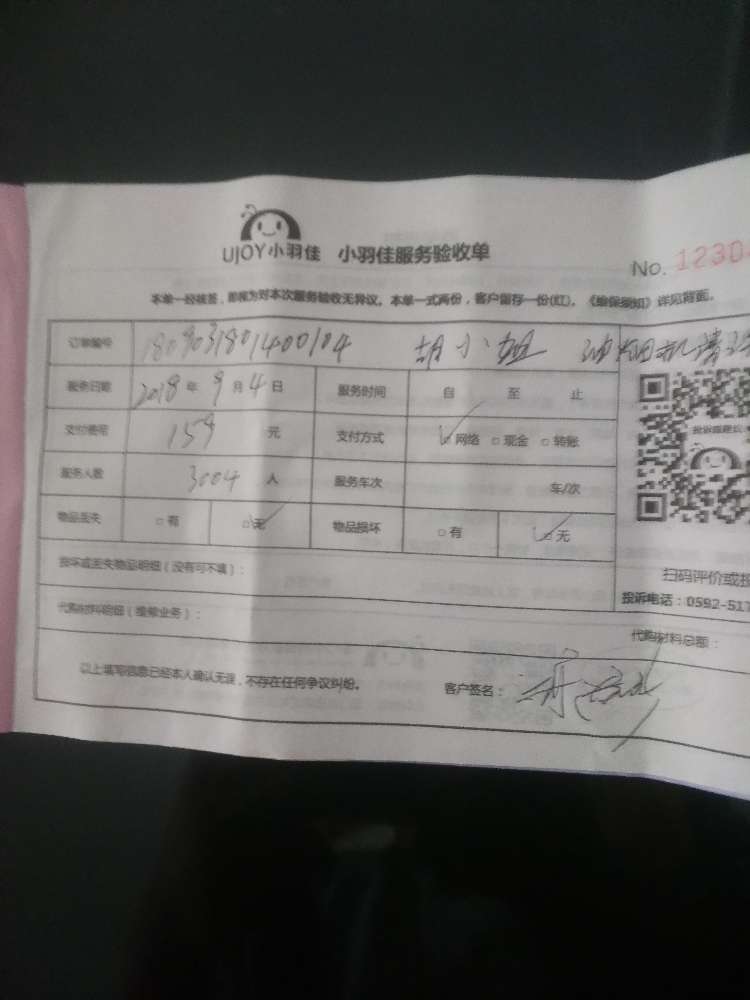 UJOY小羽佳 小羽佳服务验收单
No. 1230
本单一经核签，即视为对本次服务验收无异议。本单一式两份，客户留存一份(红)。《维保须知》详见背面。
订单编号 1809031801400104 胡小姐 油烟机清洗
服务日期 2018年9月4日 服务时间 自 至 止
支付费用 159 元 支付方式 网络 现金 转账
服务人数 3004 人 服务车次 车/次
投诉或建议
物品丢失 有 无 物品损坏 有 无
扫码评价或投
损坏或丢失物品明细（没有可不填）：
投诉电话：0592-517
代购材料明细（维修业务）：
代购材料总额：
以上填写信息已经本人确认无误，不存在任何争议纠纷。 客户签名：